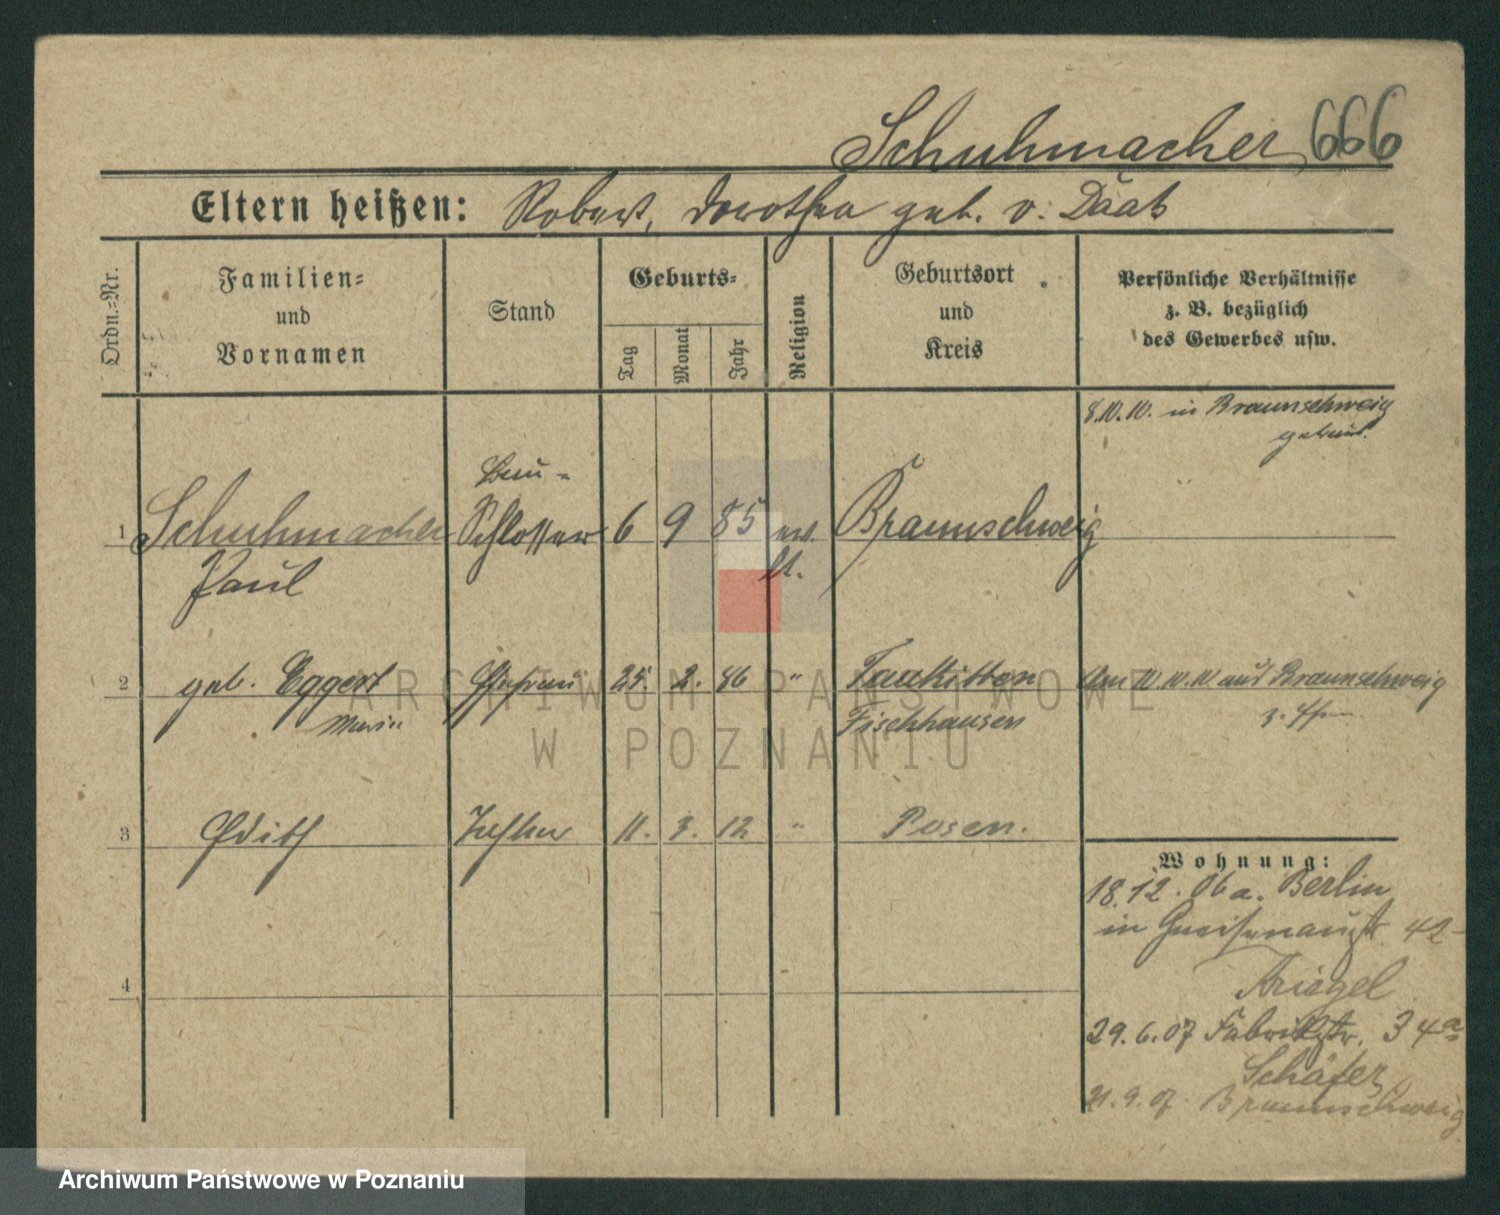 Schuhmacher, 666
Eltern heißen: Robert, Dorothea geb. v. Daats
Ordn.-Nr.
Familien-
und
Vornamen
Stand
Geburts-
Tag
Monat
Jahr
Religion
Geburtsort
und
Kreis
Persönliche Verhältnisse
z. B. bezüglich
des Gewerbes usw.
8.10.10. in Braunschweig
getraut.
Bau-
1 Schuhmacher Schlosser 6 9 85 ev. Braunschweig
Paul lt.
2 geb. Eggert Ehefrau 25. 2. 86 " Taukitten Am 10.10.10 aus Braunschweig
Marie Fischhausen z.
3 Edith Tochter 11. 3. 12 " Posen.
Wohnung:
18.12.06 a. Berlin
in Gneisenaustr. 42
Kriegel
4
29.6.07 Fabrikstr. 34a
Schäfer
21.9.07. Braunschweig
ARCHIWUM PAŃSTWOWE
W POZNANIU
Archiwum Państwowe w Poznaniu